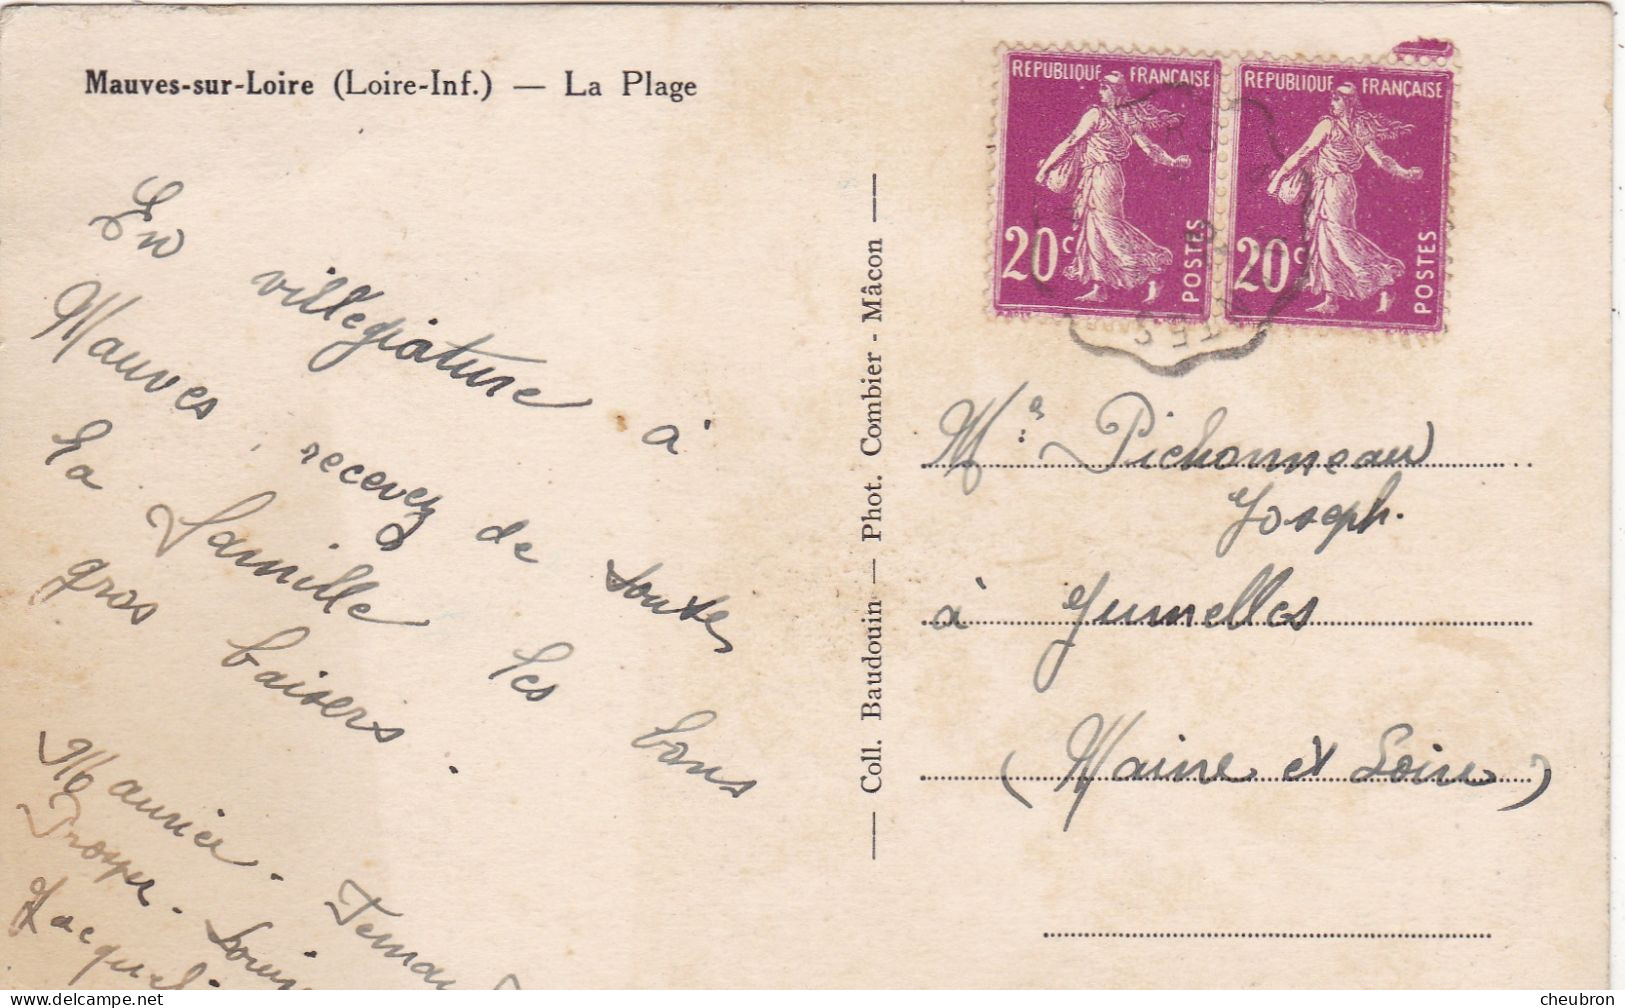 Mauves-sur-Loire (Loire-Inf.) — La Plage
En villegiature à
Mauves, recevez de toute
la famille les bons
gros baisers.
Maurice - Fernan
Prosper - Louis
Jacquel
Coll. Baudouin — Phot. Combier - Mâcon
REPUBLIQUE FRANÇAISE
20c
POSTES
REPUBLIQUE FRANÇAISE
20c
POSTES
Pichonneau
Joseph.
à Jumelles
(Maine et Loire)
delcampe.net
cheubron